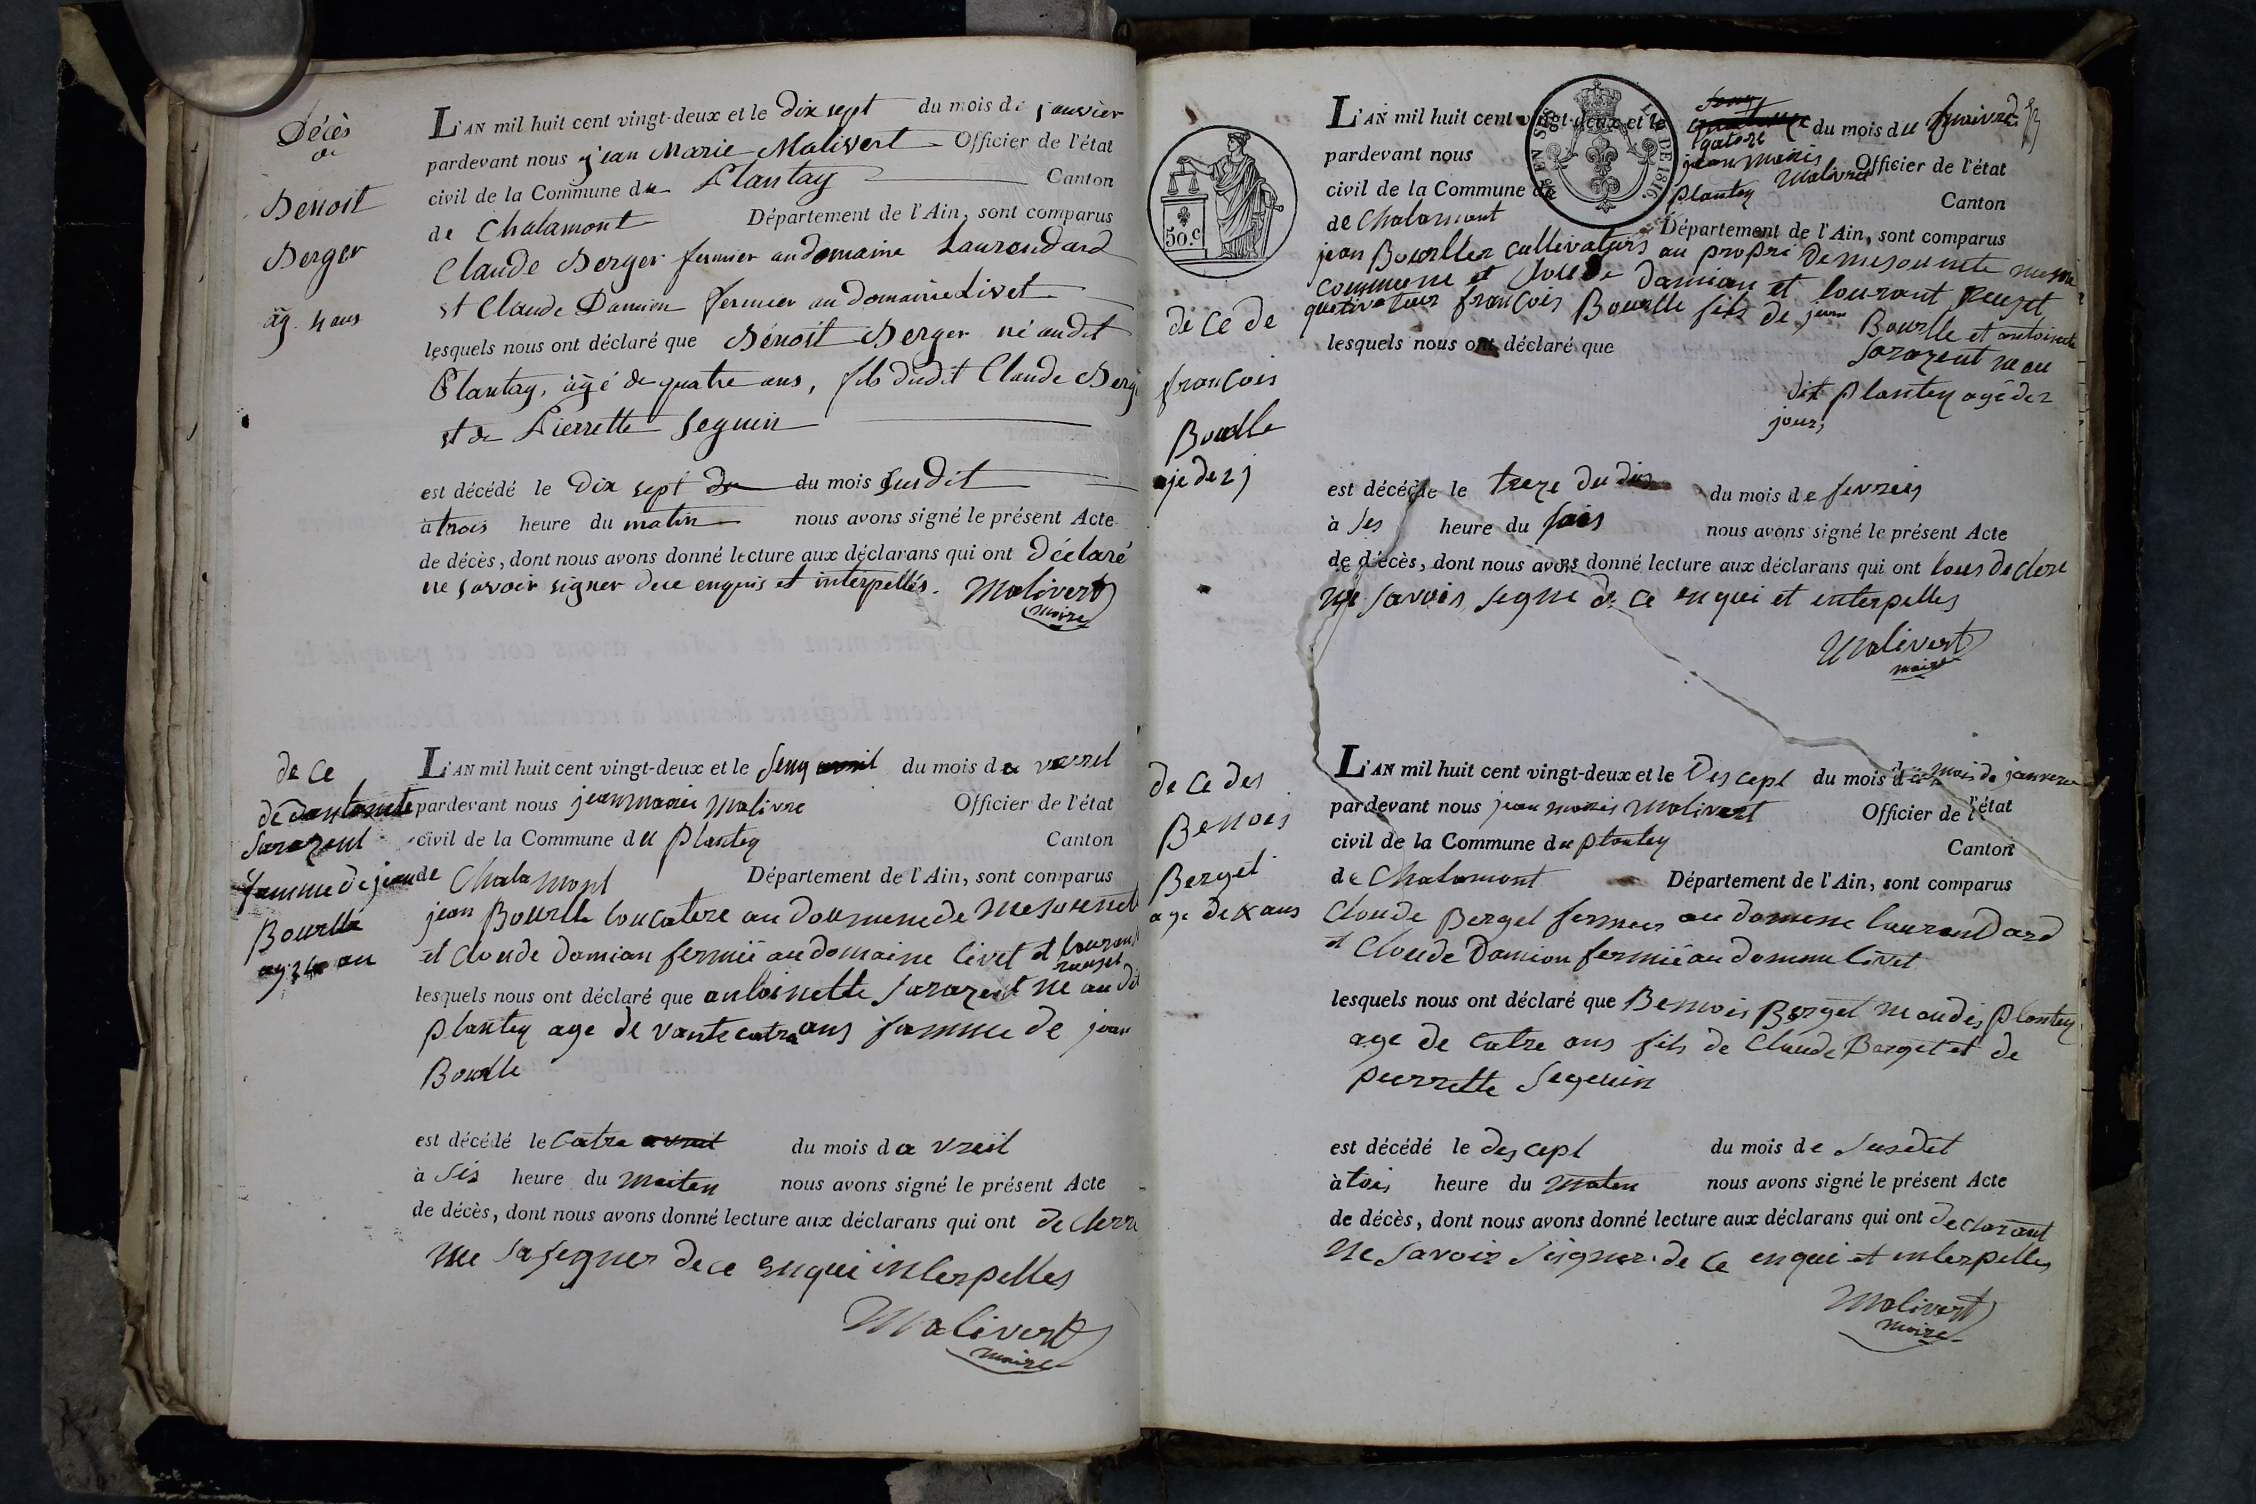 Décès
de
Benoit
Berger
âg. 4 ans
L'AN mil huit cent vingt-deux et le Dix sept du mois de janvier
pardevant nous jean Marie Malivert Officier de l'état
civil de la Commune du Plantay Canton
de Chalamont Département de l'Ain, sont comparus
Claude Berger fermier au domaine Laurendard
et Claude Damian fermier au domaine Livet
lesquels nous ont déclaré que Bénoit Berger né audit
Plantay, âgé de quatre ans, fils dudit Claude Berg
et de Pierrette Seguin
est décédé le Dix sept du du mois susdit
à trois heure du matin nous avons signé le présent Acte
de décès, dont nous avons donné lecture aux déclarans qui ont déclaré
ne savoir signer de ce enquis et interpellés. Malivert
maire
de ce
de dantoinete
Sarazent
famme de jean
Bourlle
L'AN mil huit cent vingt-deux et le senq avril du mois da vrril
pardevant nous jeanmarie Malivre Officier de l'état
civil de la Commune du plantey Canton
de Chalamont Département de l'Ain, sont comparus
jean Bourlle loucatere au doumene de Mesounet
et Cloude Damian fermié au domaine livet et lourant
rouset
lesquels nous ont déclaré que antoinette Sarazent ne au dit
plantey age de vante catre ans famme de jean
Bourlle
est décédé le Catre avril du mois da vreil
à Sis heure du maiten nous avons signé le présent Acte
de décès, dont nous avons donné lecture aux déclarans qui ont de clerre
nee sa segner de ce enquei interpelles
Malivert
maire
50.c
LOI DE 1816
de ce de
francois
Bourlle
aje de 2 j
L'AN mil huit cent vingt-deux et le
gatore du mois du fevrie
pardevant nous jean maris Malivert Officier de l'état
civil de la Commune de plantey Canton
de Chalamont Département de l'Ain, sont comparus
jean Bourller cultivaturs au propri de mesounete
commune et Cloude Damian et lourant rouset
queltivateur francois Bourlle fils de jean Bourlle et antoinete
lesquels nous ont déclaré que Sarazent ne au
dit plantey agé de 2
jours
est décédé le treze du du mois de fevries
à ses heure du sois nous avons signé le présent Acte
de décès, dont nous avons donné lecture aux déclarans qui ont tous declere
ne savois segne de ce enquei et enterpelles
Malivert
maire
de ce des
Benois
Berget
age de 4 ans
L'AN mil huit cent vingt-deux et le Des cept du mois de mois de janvere
pardevant nous jean maris Malivert Officier de l'état
civil de la Commune du plantey Canton
de Chalamont Département de l'Ain, sont comparus
Cloude Berget fermier au domene laurandard
et Cloude Damion fermié au domene livet
lesquels nous ont déclaré que Benois Berget ne audis plantey
age de catre ans fils de Claude Barget et de
peurrette Segeuin
est décédé le des cept du mois de susdit
à tois heure du maten nous avons signé le présent Acte
de décès, dont nous avons donné lecture aux déclarans qui ont declarant
ne savoir seigner de ce enquei et enterpelles
Malivert
maire